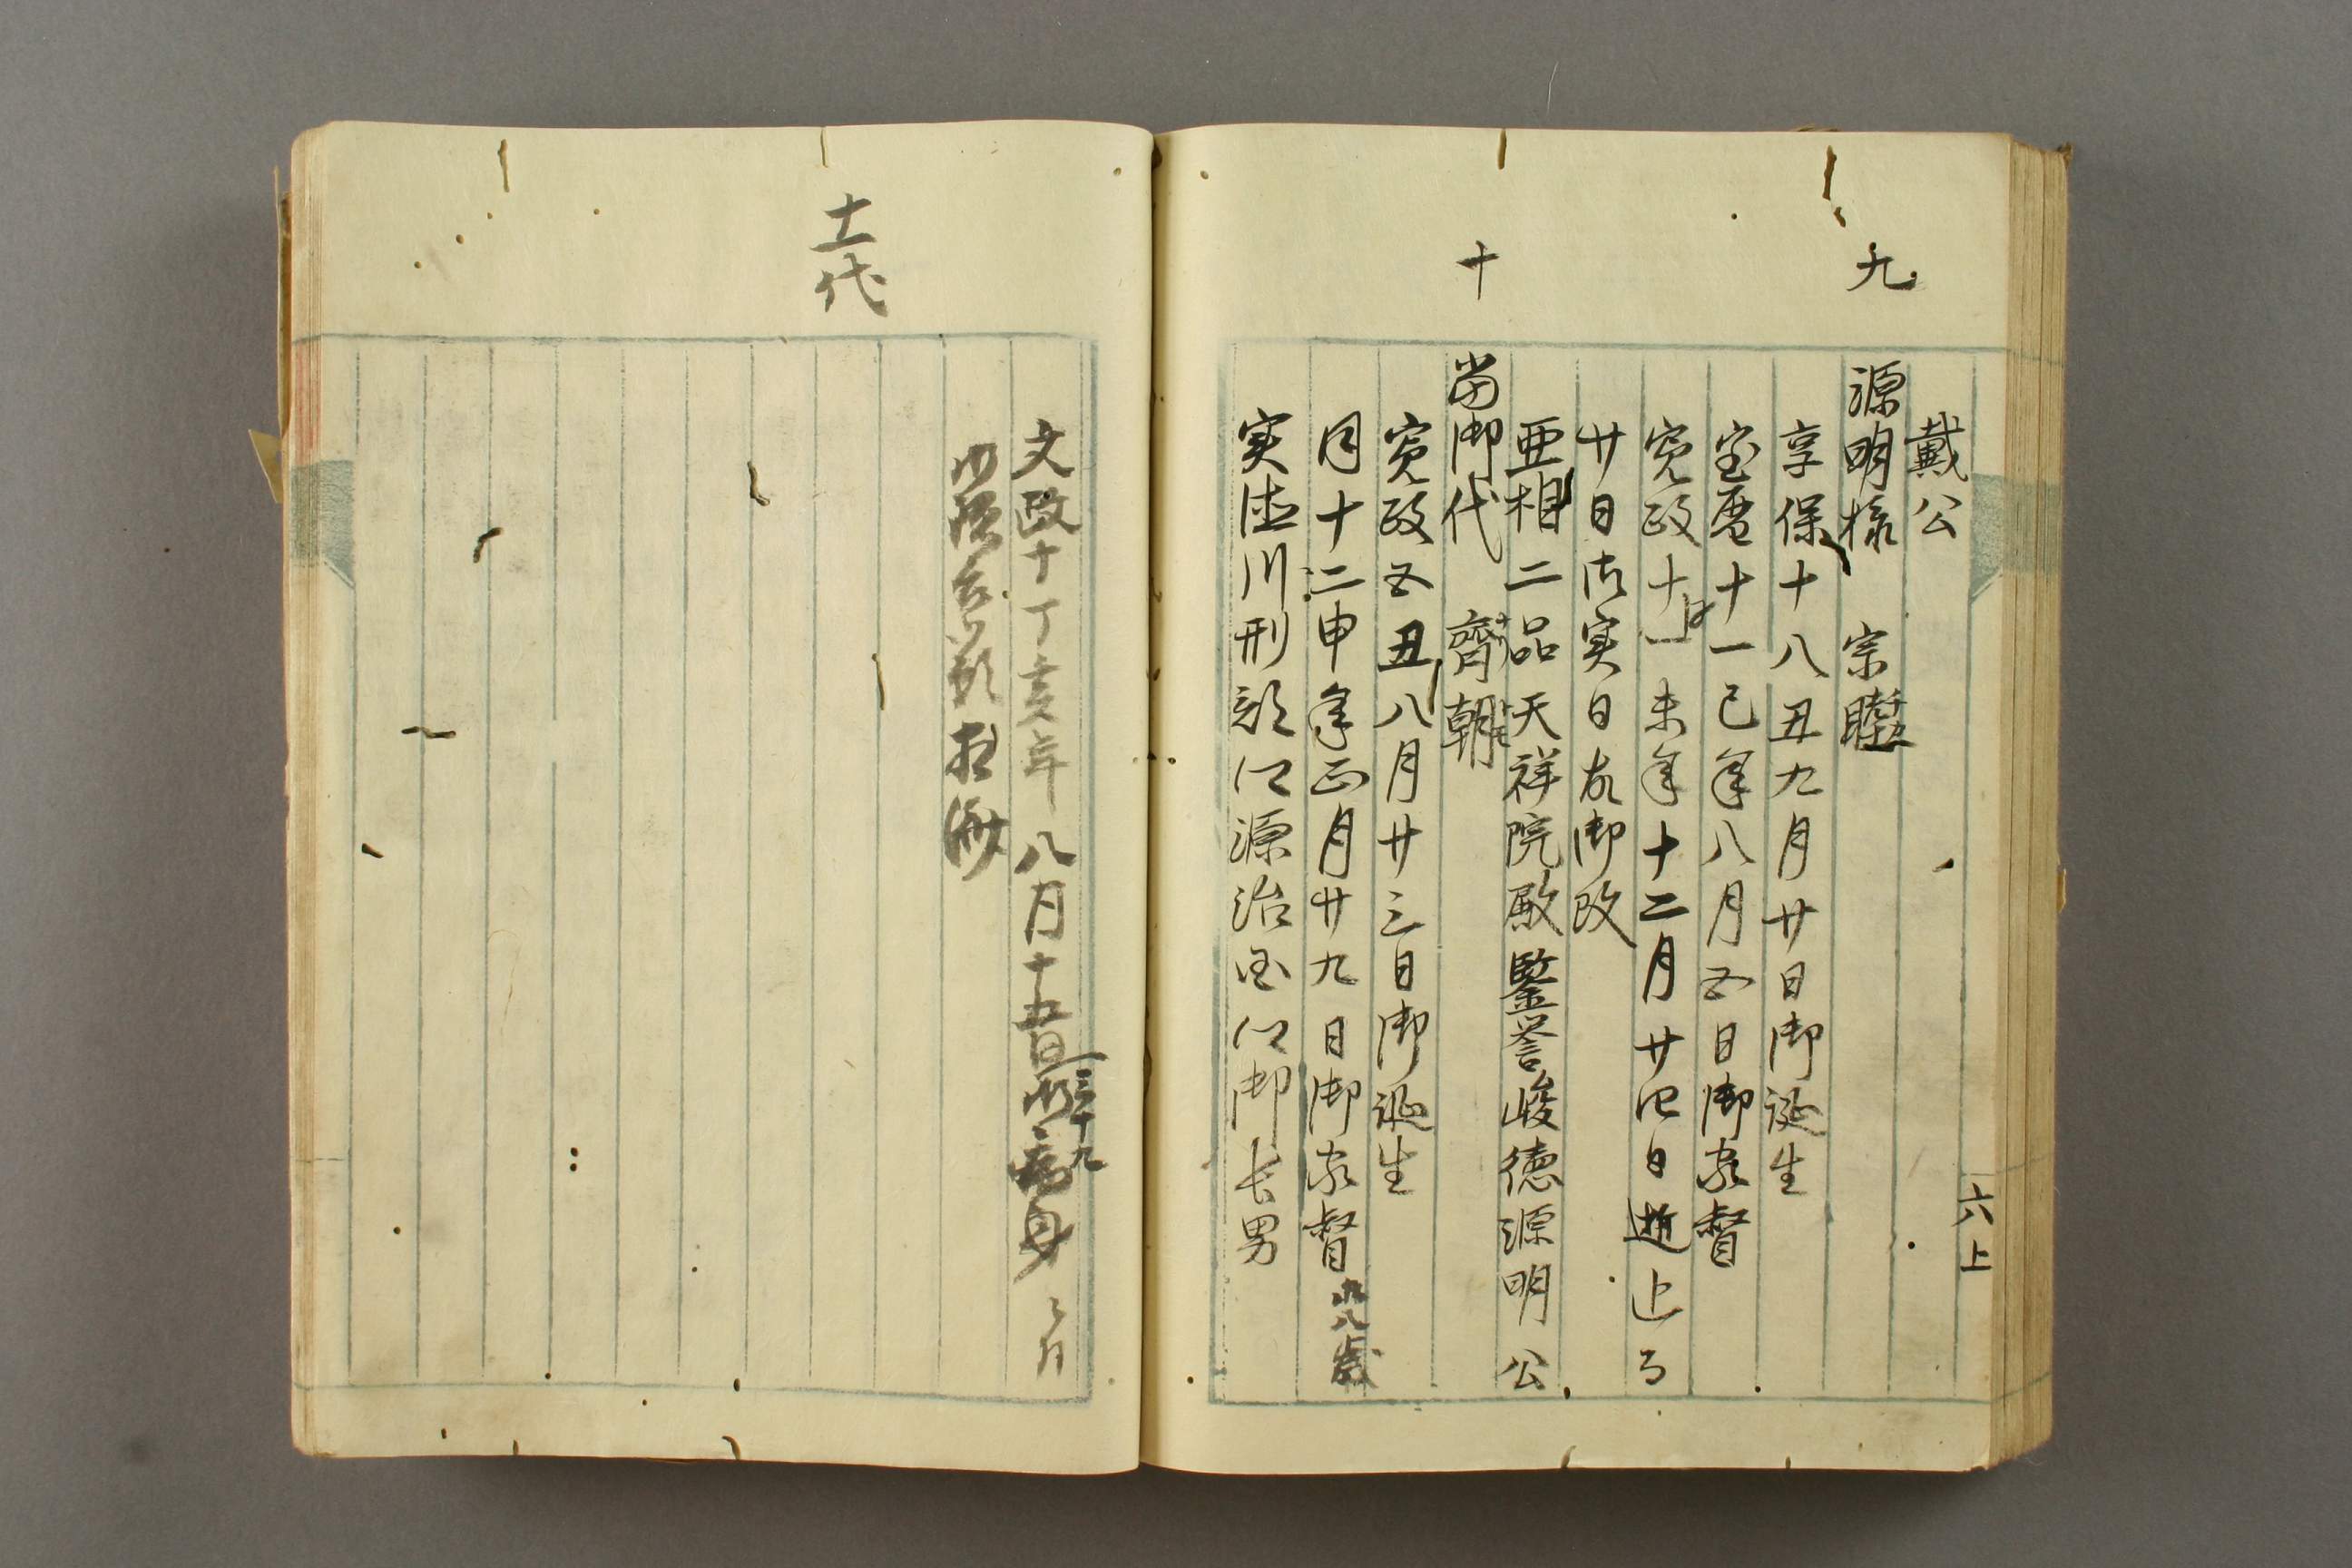 九
戴公
源明様 宗睦
享保十八丑九月廿日御誕生
宝暦十一巳年八月五日御家督
寛政十一未年十二月廿四日逝去
廿日御実日
亜相二品天祥院殿鑒誉峻徳源明公
十
当御代 齊朝
寛政五丑八月廿三日御誕生
同十二申年正月廿九日御家督 八歳
実徳川刑部卿源治国卿御長男
六上
十一代
文政十丁亥年八月十五日 病身
三十九